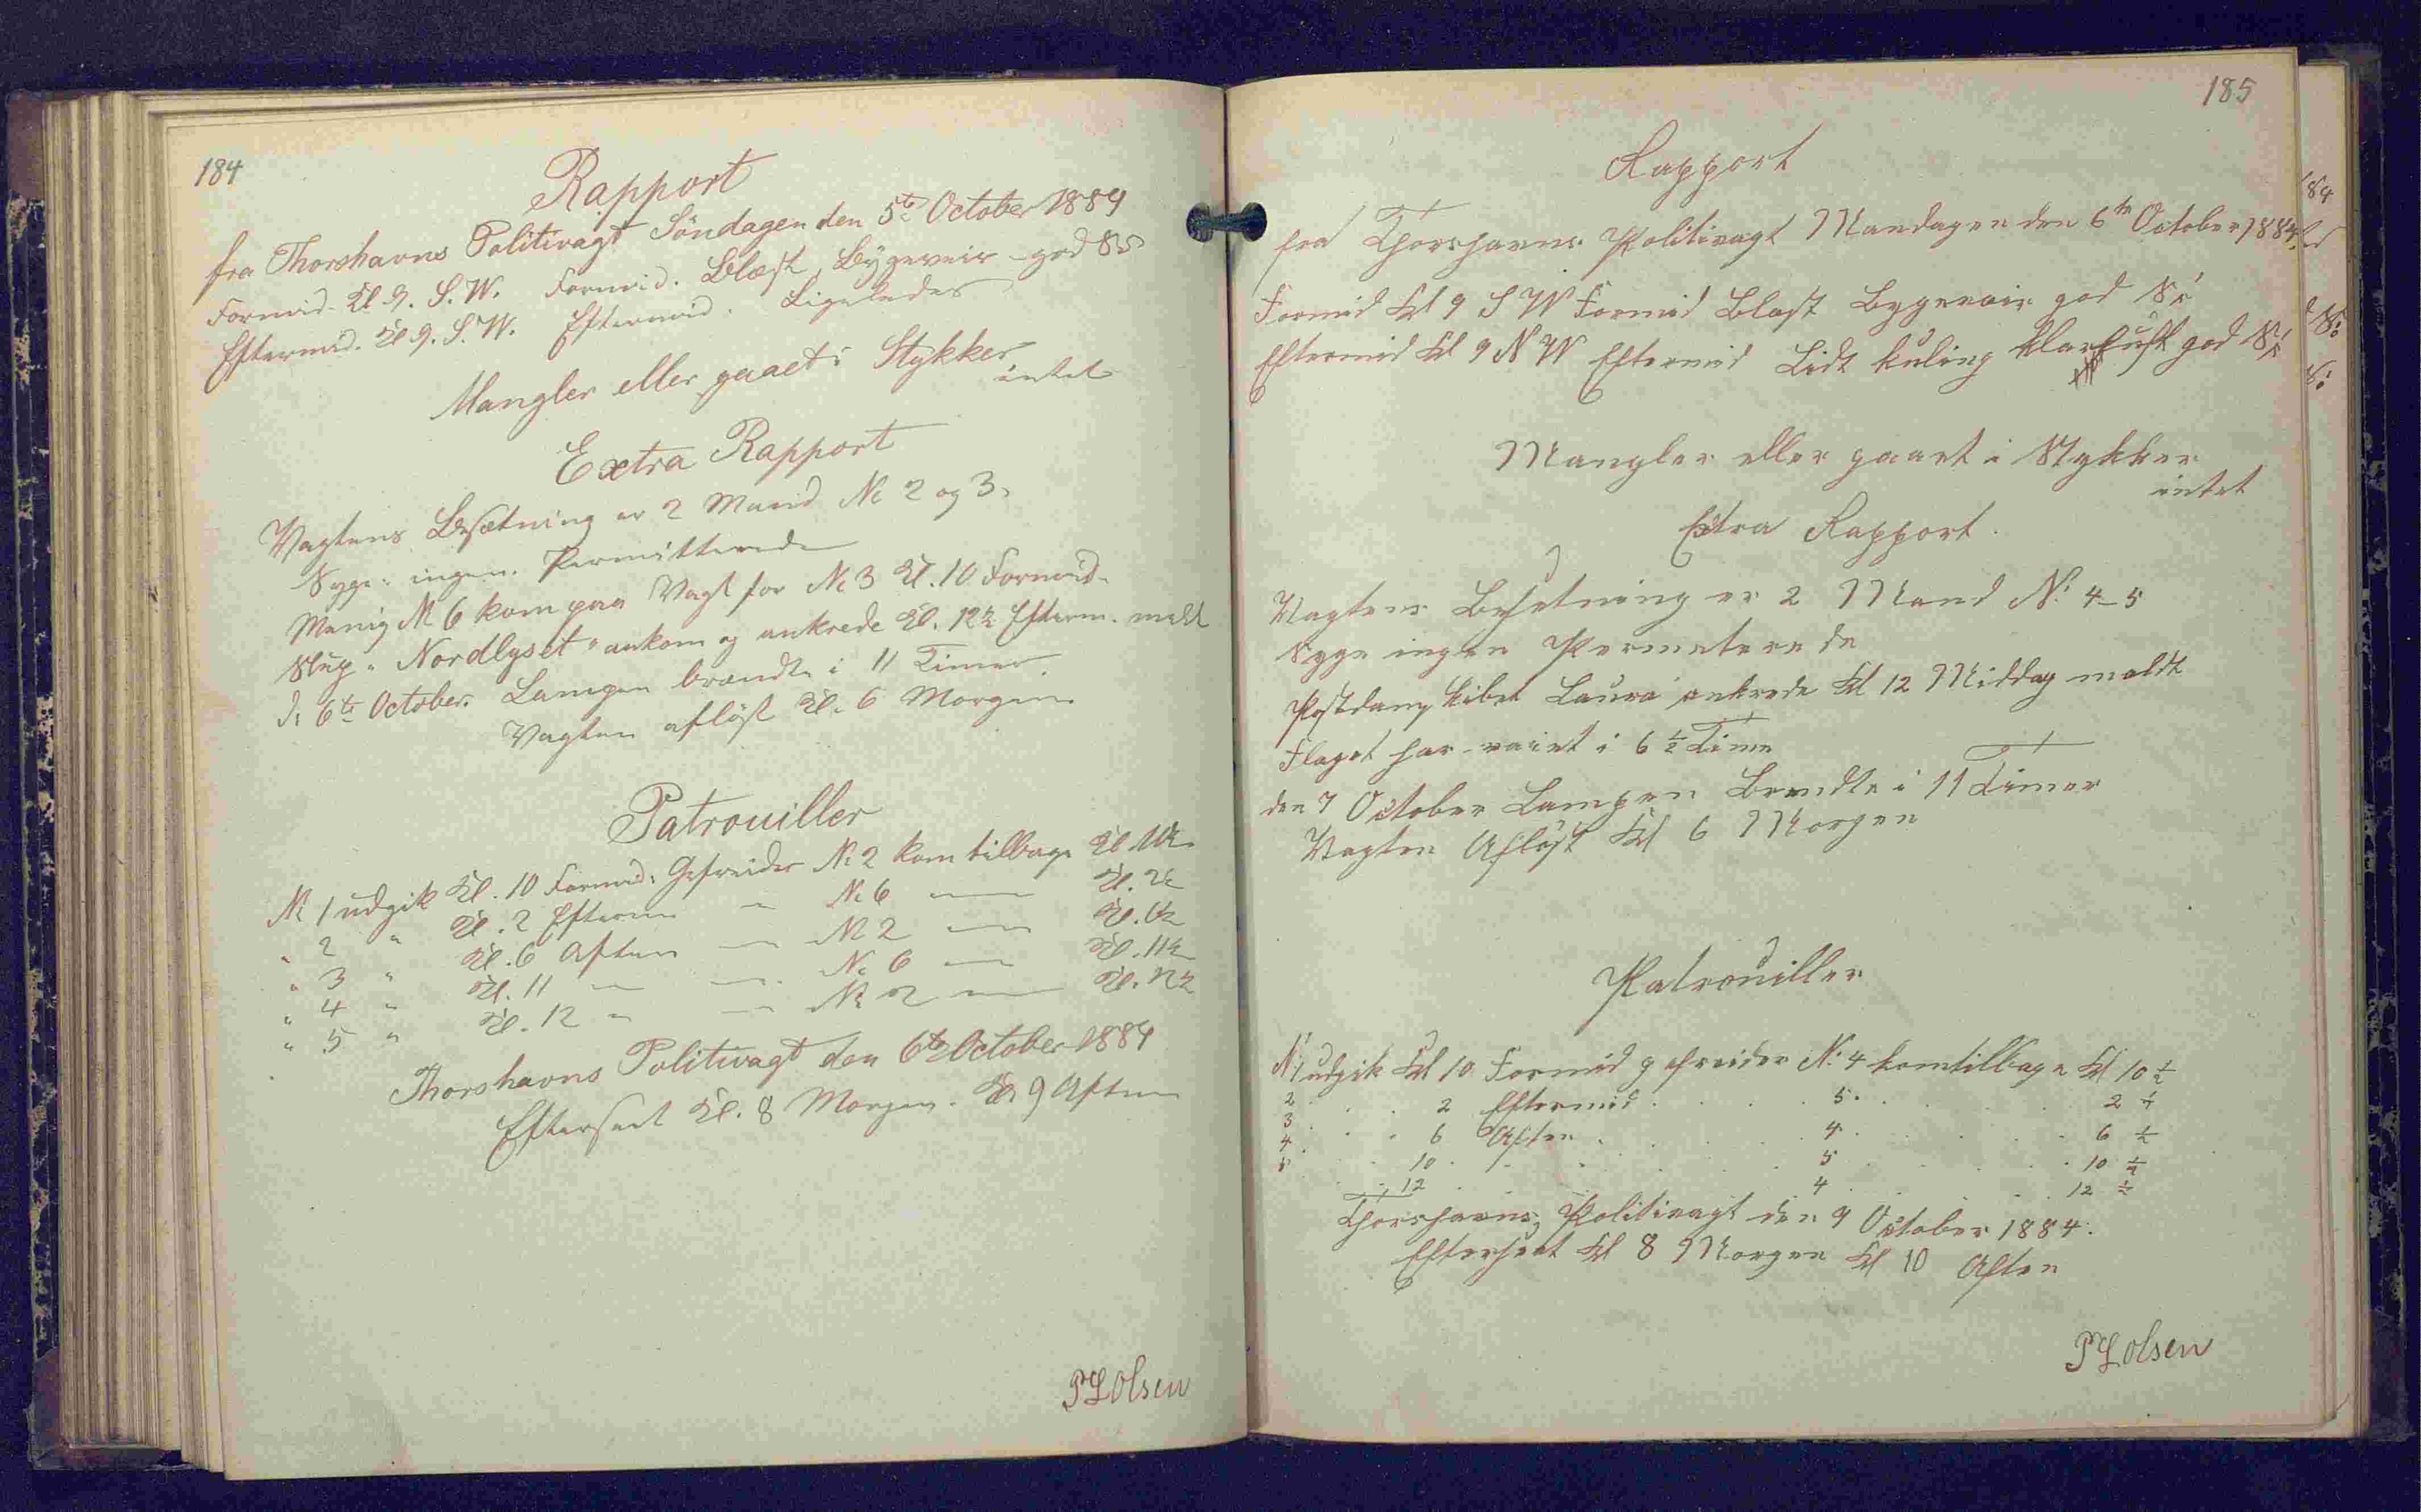 184
Rapport
fra Thorshavns Politivagt Söndagen den 5te October 1884
Formid. Kl. 9. S. W. Formid. Blæst, Bygeveir - god Sr
Eftermid. Kl 9. S. W. Eftermid. Ligeledes
Mangler eller gaaet i Stykker
intet
Extra Rapport
Vagtens Besætning er 2 Mand No 2 og 3.
Syge: ingen. Permitterede
Menig No 6 kom paa Vagt for No 3 Kl. 10 Formid.
Slup "Nordlyset" ankom og ankrede Kl. 12½ Efterm. meldt
d: 6te October. Lampen brændte i 11 Timer
Vagten aflöst Kl. 6 Morgen
Patrouiller
No 1 udgik Kl. 10 Formid. Gefreider No 2 kom tilbage Kl 10½
" 2 " Kl. 2 Efterm — No 6 — Kl. 2½
" 3 " Kl. 6 Aften — No 2 — Kl. 6½
" 4 " Kl. 11 — — No 6 — Kl. 11½
" 5 " Kl. 12 " — No 2 — Kl. 12½
Thorshavns Politivagt den 6te October 1884
Efterseet Kl. 8 Morgen. Kl 9 Aften
PLOlsen
185
Rapport
fra Thorshavns Politivagt Mandagen den 6te October 1884
Formid Kl 9 S W Formid Blæst Bygeveir god Sr
Eftermid Kl 9 N W Eftermid Lidt kuling klar Luft god Sr
Mangler eller gaaet i Stykker
intet
Extra Rapport.
Vagtens Besetning er 2 Mand No 4-5
Syge ingen Permeterede
Postdampskibet Laura ankrede Kl 12 Middag meldt
Flaget har vaiet i 6½ Time
den 7 October Lampen Brendte i 11 Timer
Vagten Aflöst Kl 6 Morgen
Patrouiller
No 1 udgik Kl 10 Formid gefreider No 4 kom tilbage Kl 10½
2 . . . 2 Eftermid . . . . 5 . . . . 2½
3 . . . 6 Aften . . . . 4 . . . . 6½
4 . . . 10 . . . . 5 . . . . 10½
5 . . . 12 . . . . 4 . . . . 12½
Thorshavns Politivagt den 7 October 1884.
Efterseet Kl 8 Morgen Kl 10 Aften
PLOlsen